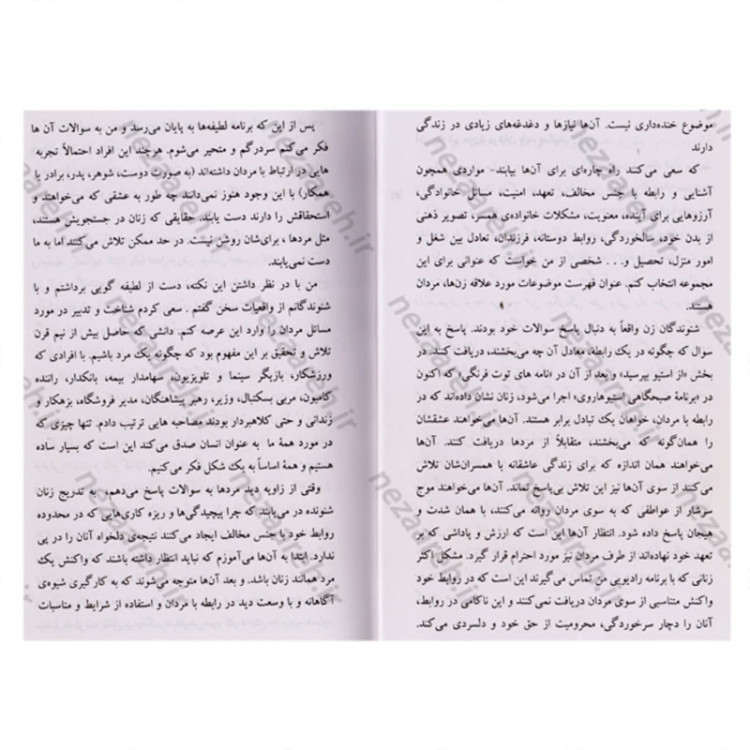 موضوع خنده‌داری نیست. آن‌ها نیازها و دغدغه‌های زیادی در زندگی
دارند
که سعی می‌کنند راه چاره‌ای برای آن‌ها بیابند- مواردی همچون
آشنایی و رابطه با جنس مخالف، تعهد، امنیت، مسائل خانوادگی،
آرزوهایی برای آینده، معنویت، مشکلات خانواده‌ی همسر، تصویر ذهنی
از بدن خود، سالخوردگی، روابط دوستانه، فرزندان، تعادل بین شغل و
امور منزل، تحصیل و... شخصی از من خواست که عنوانی برای این
مجموعه انتخاب کنم. عنوان فهرست موضوعات مورد علاقه زن‌ها، مردان
هستند.
شنوندگان زن واقعاً به دنبال پاسخ سوالات خود بودند. پاسخ به این
سوال که چگونه در یک رابطه، معادل آن چه می‌بخشند، دریافت کنند. در
بخش «از استیو بپرسید» و بعد از آن در «نامه های توت فرنگی» که اکنون
در «برنامه صبحگاهی استیوهاروی» اجرا می‌شود، زنان نشان داده‌اند که در
رابطه با مردان، خواهان یک تبادل برابر هستند. آن‌ها می‌خواهند عشقشان
را همان‌گونه که می‌بخشند، متقابلاً از مردها دریافت کنند. آن‌ها
می‌خواهند همان اندازه که برای زندگی عاشقانه با همسرانشان تلاش
می‌کنند از سوی آن‌ها نیز این تلاش بی‌پاسخ نماند. آن‌ها می‌خواهند موج
سرشار از عواطفی که به سوی مردان روانه می‌کنند، با همان شدت و
هیجان پاسخ داده شود. انتظار آن‌ها این است که ارزش و پاداشی که بر
تعهد خود نهاده‌اند از طرف مردان نیز مورد احترام قرار گیرد. مشکل اکثر
زنانی که با برنامه رادیویی من تماس می‌گیرند این است که در روابط خود
واکنش متناسبی از سوی مردان دریافت نمی‌کنند و این ناکامی در روابط،
آنان را دچار سرخوردگی، محرومیت از حق خود و دلسردی می‌کند.
پس از این که برنامه لطیفه‌ها به پایان می‌رسد و من به سوالات آن ها
فکر می‌کنم سردرگم و متحیر می‌شوم. هرچند این افراد احتمالاً تجربه
هایی در ارتباط با مردان داشته‌اند (به صورت دوست، شوهر، پدر، برادر یا
همکار) با این وجود هنوز نمی‌دانند چه طور به عشقی که می‌خواهند و
استحقاقش را دارند دست یابند. حقایقی که زنان در جستجویش هستند،
مثل مردها ، برای‌شان روشن نیست. در حد ممکن تلاش می‌کنند اما به ما
دست نمی‌یابند.
من با در نظر داشتن این نکته، دست از لطیفه گویی برداشتم و با
شنوندگانم از واقعیات سخن گفتم . سعی کردم شناخت و تدبیر در مورد
مسائل مردان را وارد این عرصه کنم. دانشی که حاصل بیش از نیم قرن
تلاش و تحقیق بر این مفهوم بود که چگونه یک مرد باشیم. با افرادی که
ورزشکار، بازیگر سینما و تلویزیون، سهامدار بیمه، بانکدار، راننده
کامیون، مربی بسکتبال، وزیر، رهبر پیشاهنگان، مدیر فروشگاه، بزهکار و
زندانی و حتی کلاهبردار بودند مصاحبه هایی ترتیب دادم. تنها چیزی که
در مورد همهٔ ما به عنوان انسان صدق می‌کند این است که بسیار ساده
هستیم و همهٔ اساساً به یک شکل فکر می‌کنیم.
وقتی از زاویه دید مردها به سوالات پاسخ می‌دهم، به تدریج زنان
شنونده در می‌یابند که چرا پیچیدگی‌ها و ریزه کاری‌هایی که در محدوده
روابط خود با جنس مخالف ایجاد می‌کنند نتیجه‌ی دلخواه آنان را در پی
ندارد. ابتدا به آن‌ها می‌آموزم که نباید انتظار داشته باشند که واکنش یک
مرد همانند زنان باشد. و بعد آن‌ها متوجه می‌شوند که به کارگیری شیوه‌ی
آگاهانه و با وسعت دید در رابطه با مردان و استفاده از شرایط و مناسبات
nezaareh.ir